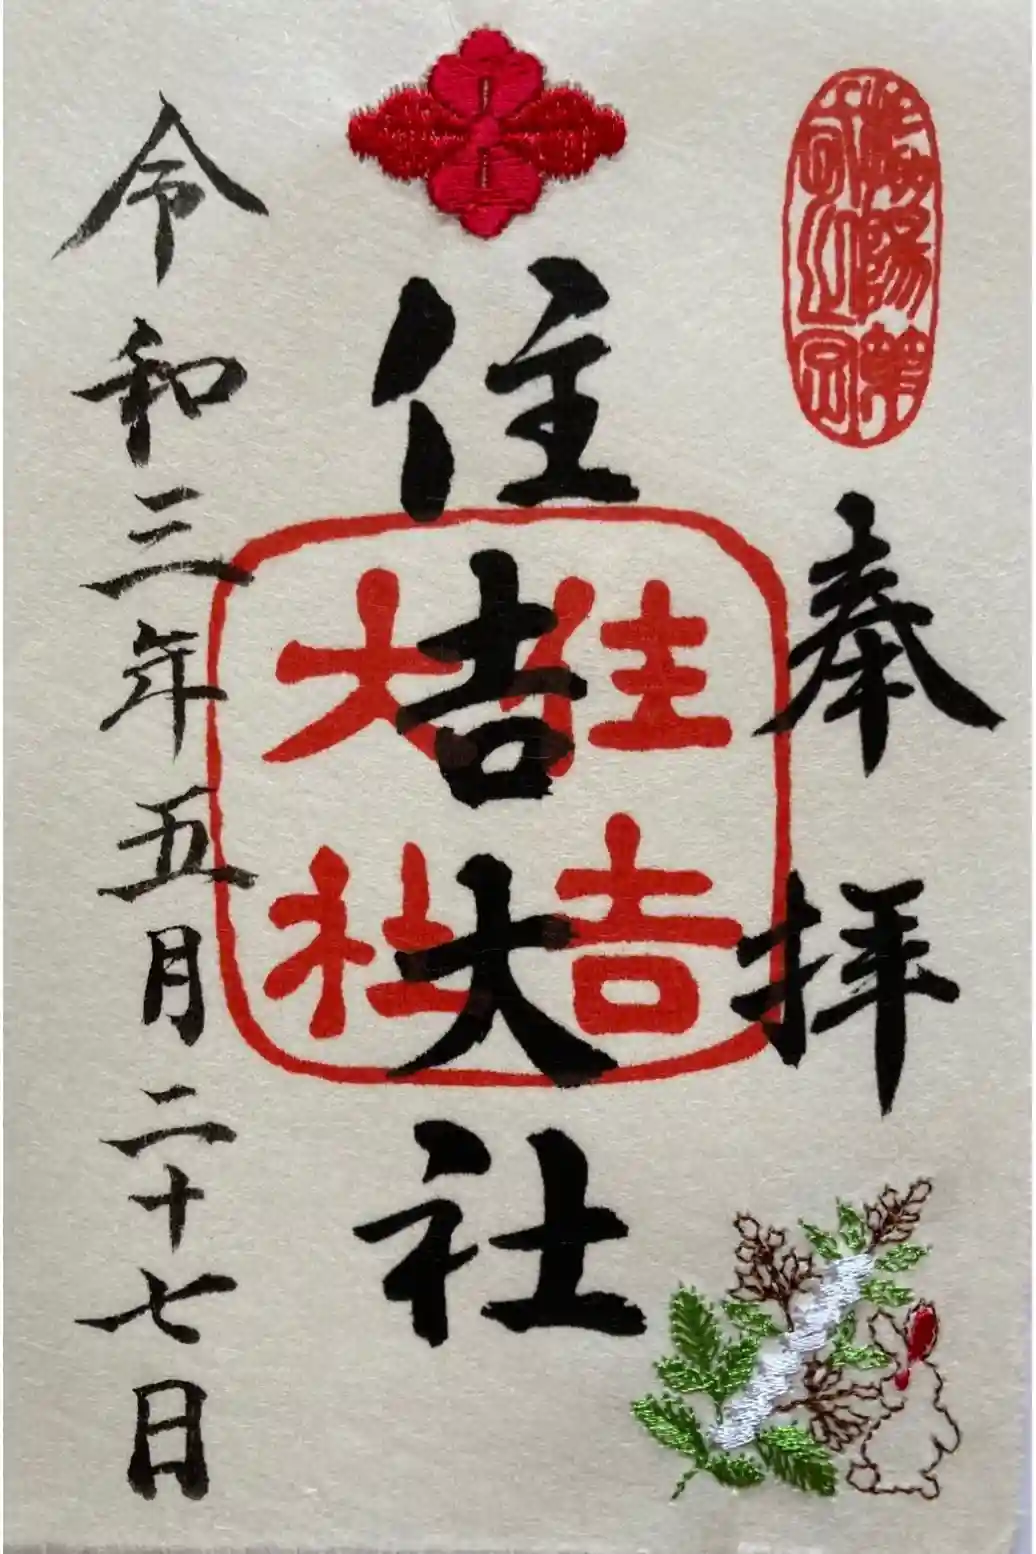 奉拝
住吉大社
住吉
大社
令和三年五月二十七日